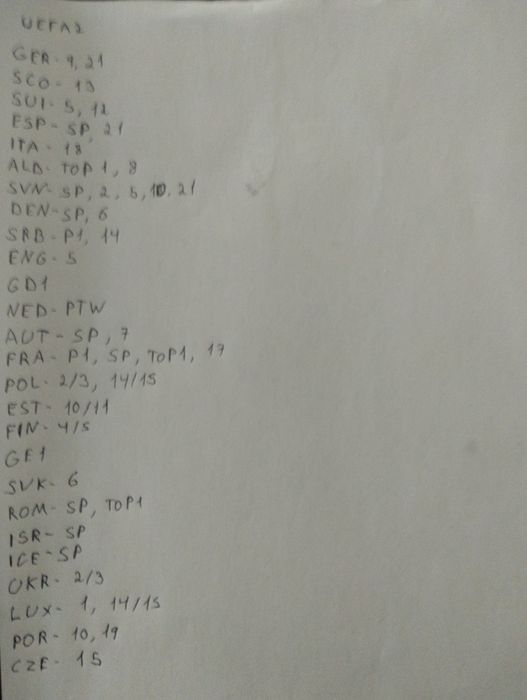 UEFA2
GER- 9, 21
SCO- 13
SUI- 5, 12
ESP- SP, 21
ITA- 18
ALB- TOP 1, 8
SVN- SP, 2, 5, 10, 21
DEN- SP, 6
SRB- P1, 14
ENG- 5
GD1
NED- PTW
AUT- SP, 7
FRA- P1, SP, TOP1, 17
POL- 2/3, 14/15
EST- 10/11
FIN- 4/5
GE1
SVK- 6
ROM- SP, TOP1
ISR- SP
ICE- SP
UKR- 2/3
LUX- 1, 14/15
POR- 10, 19
CZE- 15